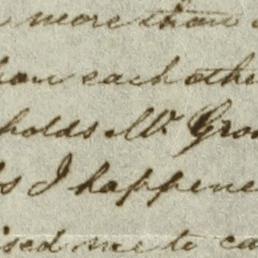 more than
each othe
holds Mr. Gro
s I happene
ised me to ca